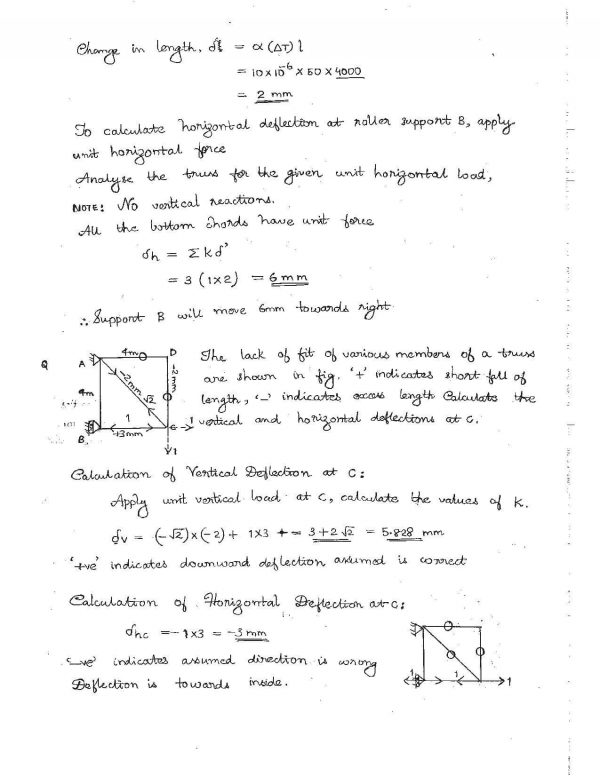 Change in length, δl = α (ΔT) l
= 10 × 10⁻⁶ × 50 × 4000
= 2 mm
To calculate horizontal deflection at roller support B, apply
unit horizontal force
Analyse the truss for the given unit horizontal load,
NOTE: No vertical reactions.
All the bottom chords have unit force
δh = Σkδ'
= 3 (1×2) = 6 mm
∴ Support B will move 6mm towards right.
Q
A 4m D
4m
-2mm √2
1
+3mm
B
C 1
1
The lack of fit of various members of a truss
are shown in fig. '+' indicates short fall of
length, '-' indicates excess length Calculate the
vertical and horizontal deflections at C.
Calculation of Vertical Deflection at C:
Apply unit vertical load at C, calculate the values of K.
δv = (-√2)×(-2) + 1×3 = 3+2√2 = 5.828 mm
'+ve' indicates downward deflection assumed is correct
Calculation of Horizontal Deflection at C:
δhc = -1×3 = -3mm
'-ve' indicates assumed direction is wrong
Deflection is towards inside.
1 1 1